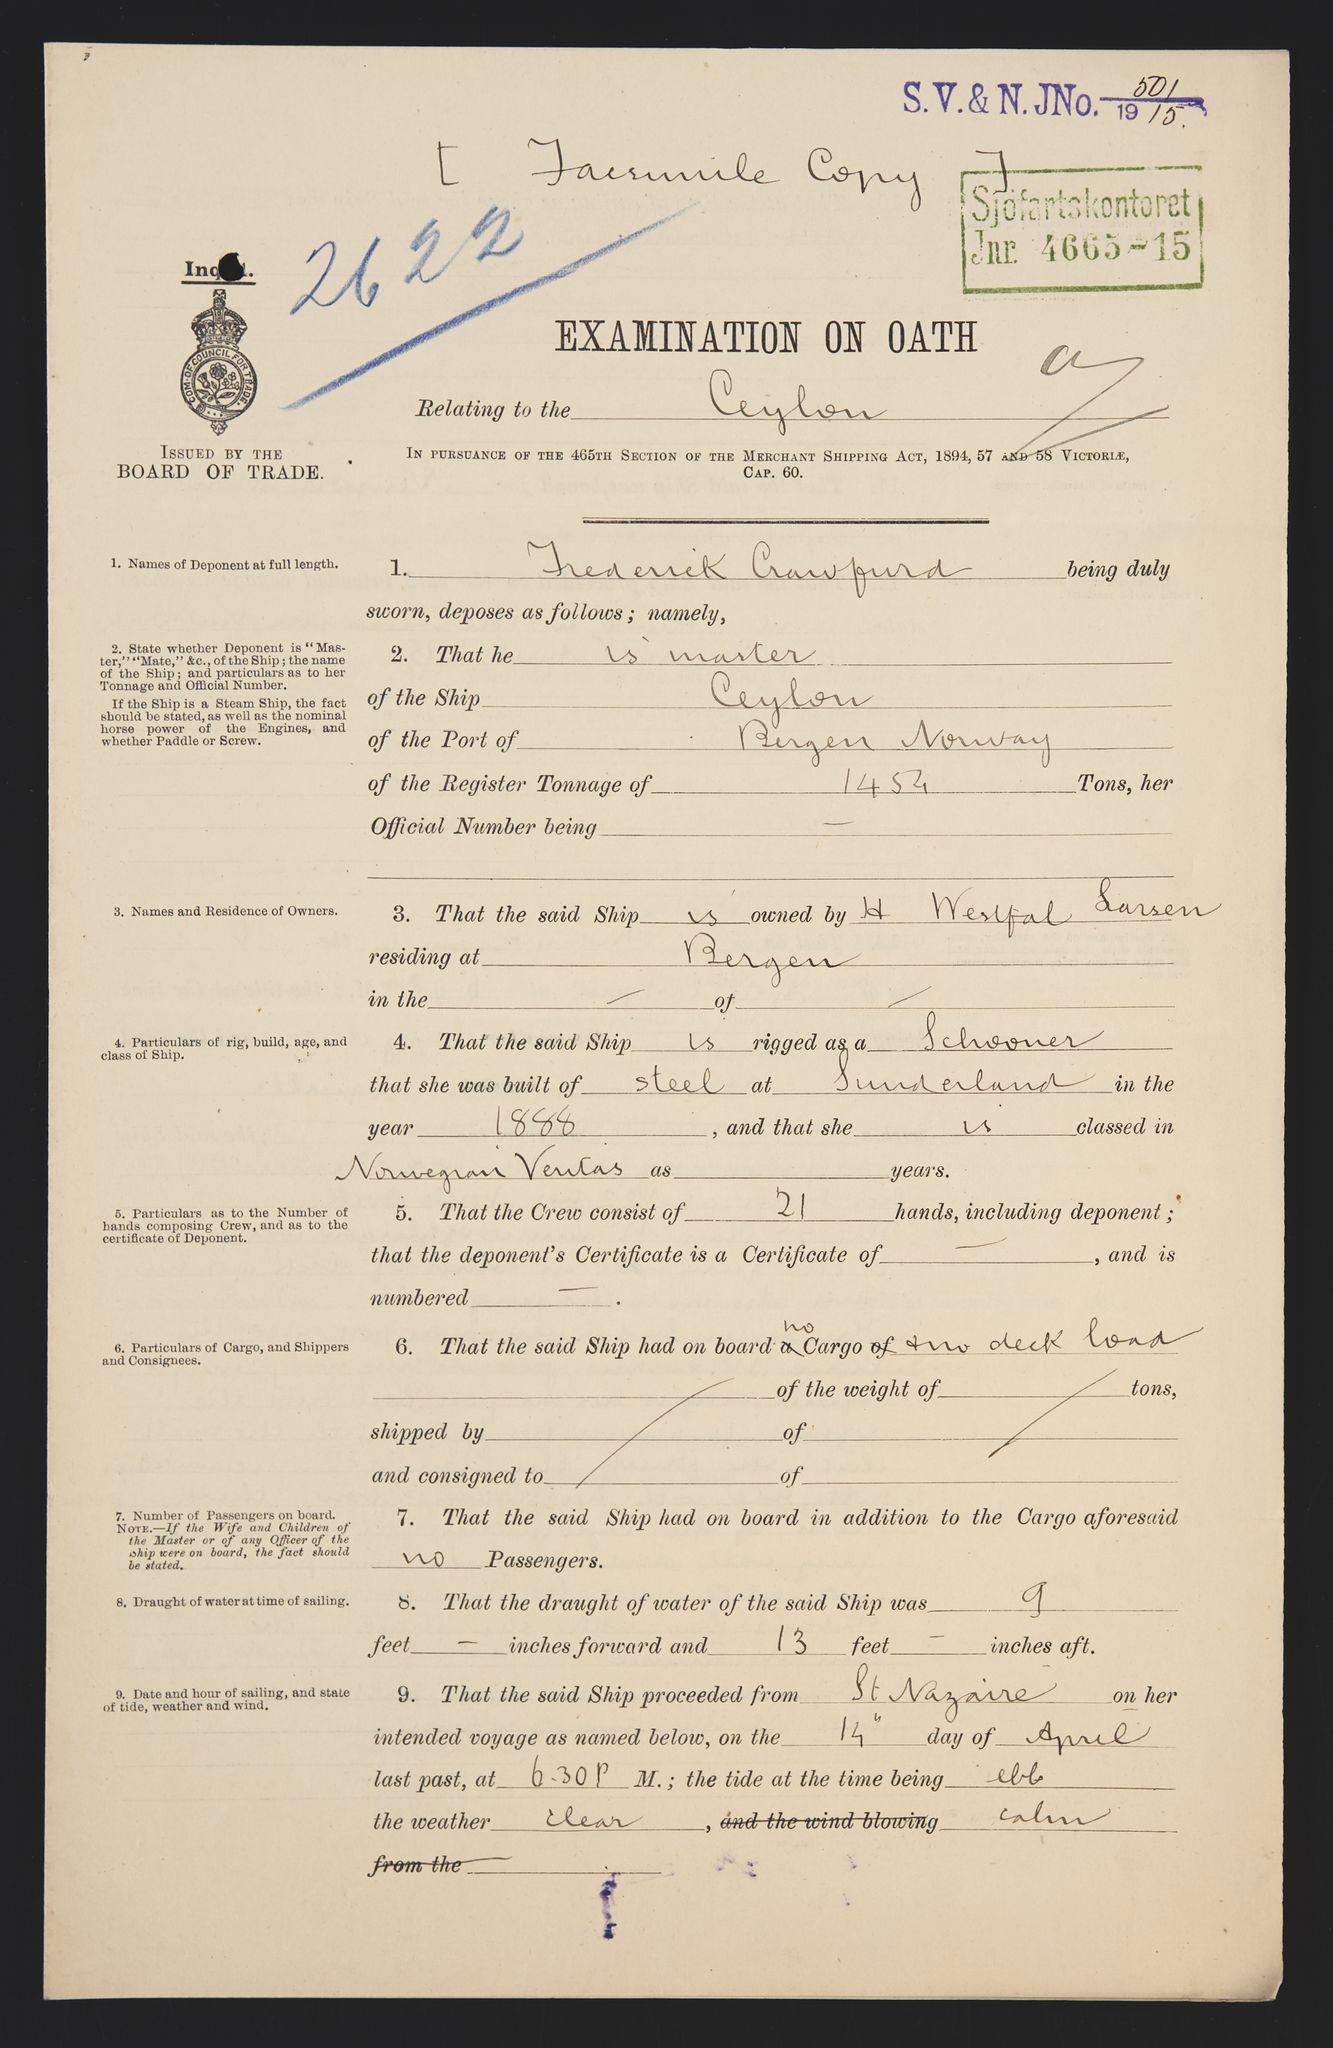 S. V. & N. JNo. 501
1915.
[ Facsimile Copy ]
Sjöfartskontoret
Jnr. 4665-15
2622
EXAMINATION ON OATH
a
COM. OF COUNCIL FOR TRADE.
ISSUED BY THE
BOARD OF TRADE.
Relating to the Ceylon
IN PURSUANCE OF THE 465TH SECTION OF THE MERCHANT SHIPPING ACT, 1894, 57 AND 58 VICTORIÆ,
CAP. 60.
1. Names of Deponent at full length.
1. Frederick Crawfurd being duly
sworn, deposes as follows; namely,
2. State whether Deponent is "Mas-
ter," "Mate," &c., of the Ship; the name
of the Ship; and particulars as to her
Tonnage and Official Number.
If the Ship is a Steam Ship, the fact
should be stated, as well as the nominal
horse power of the Engines, and
whether Paddle or Screw.
2. That he is master
of the Ship Ceylon
of the Port of Bergen Norway
of the Register Tonnage of 1454 Tons, her
Official Number being —
3. Names and Residence of Owners.
3. That the said Ship is owned by H Westfal Larsen
residing at Bergen
in the — of —
4. Particulars of rig, build, age, and
class of Ship.
4. That the said Ship is rigged as a Schooner
that she was built of steel at Sunderland in the
year 1888, and that she is classed in
Norwegian Veritas as years.
5. Particulars as to the Number of
hands composing Crew, and as to the
certificate of Deponent.
5. That the Crew consist of 21 hands, including deponent;
that the deponent's Certificate is a Certificate of —, and is
numbered —.
6. Particulars of Cargo, and Shippers
and Consignees.
6. That the said Ship had on board a no Cargo of & no deck load
of the weight of tons,
shipped by of
and consigned to of
7. Number of Passengers on board.
NOTE.—If the Wife and Children of
the Master or of any Officer of the
ship were on board, the fact should
be stated.
7. That the said Ship had on board in addition to the Cargo aforesaid
no Passengers.
8. Draught of water at time of sailing.
8. That the draught of water of the said Ship was 9
feet — inches forward and 13 feet — inches aft.
9. Date and hour of sailing, and state
of tide, weather and wind.
9. That the said Ship proceeded from St Nazaire on her
intended voyage as named below, on the 14" day of April
last past, at 6.30 P M.; the tide at the time being ebb
the weather clear, and the wind blowing calm
from the —